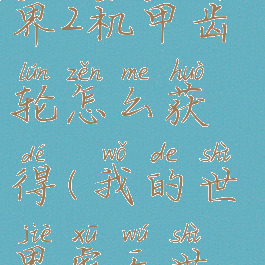 界2机甲齿
lún zěn me huò
轮怎么获
dé wǒ de shì
得(我的世
jiè xū wú shì
界虚无世